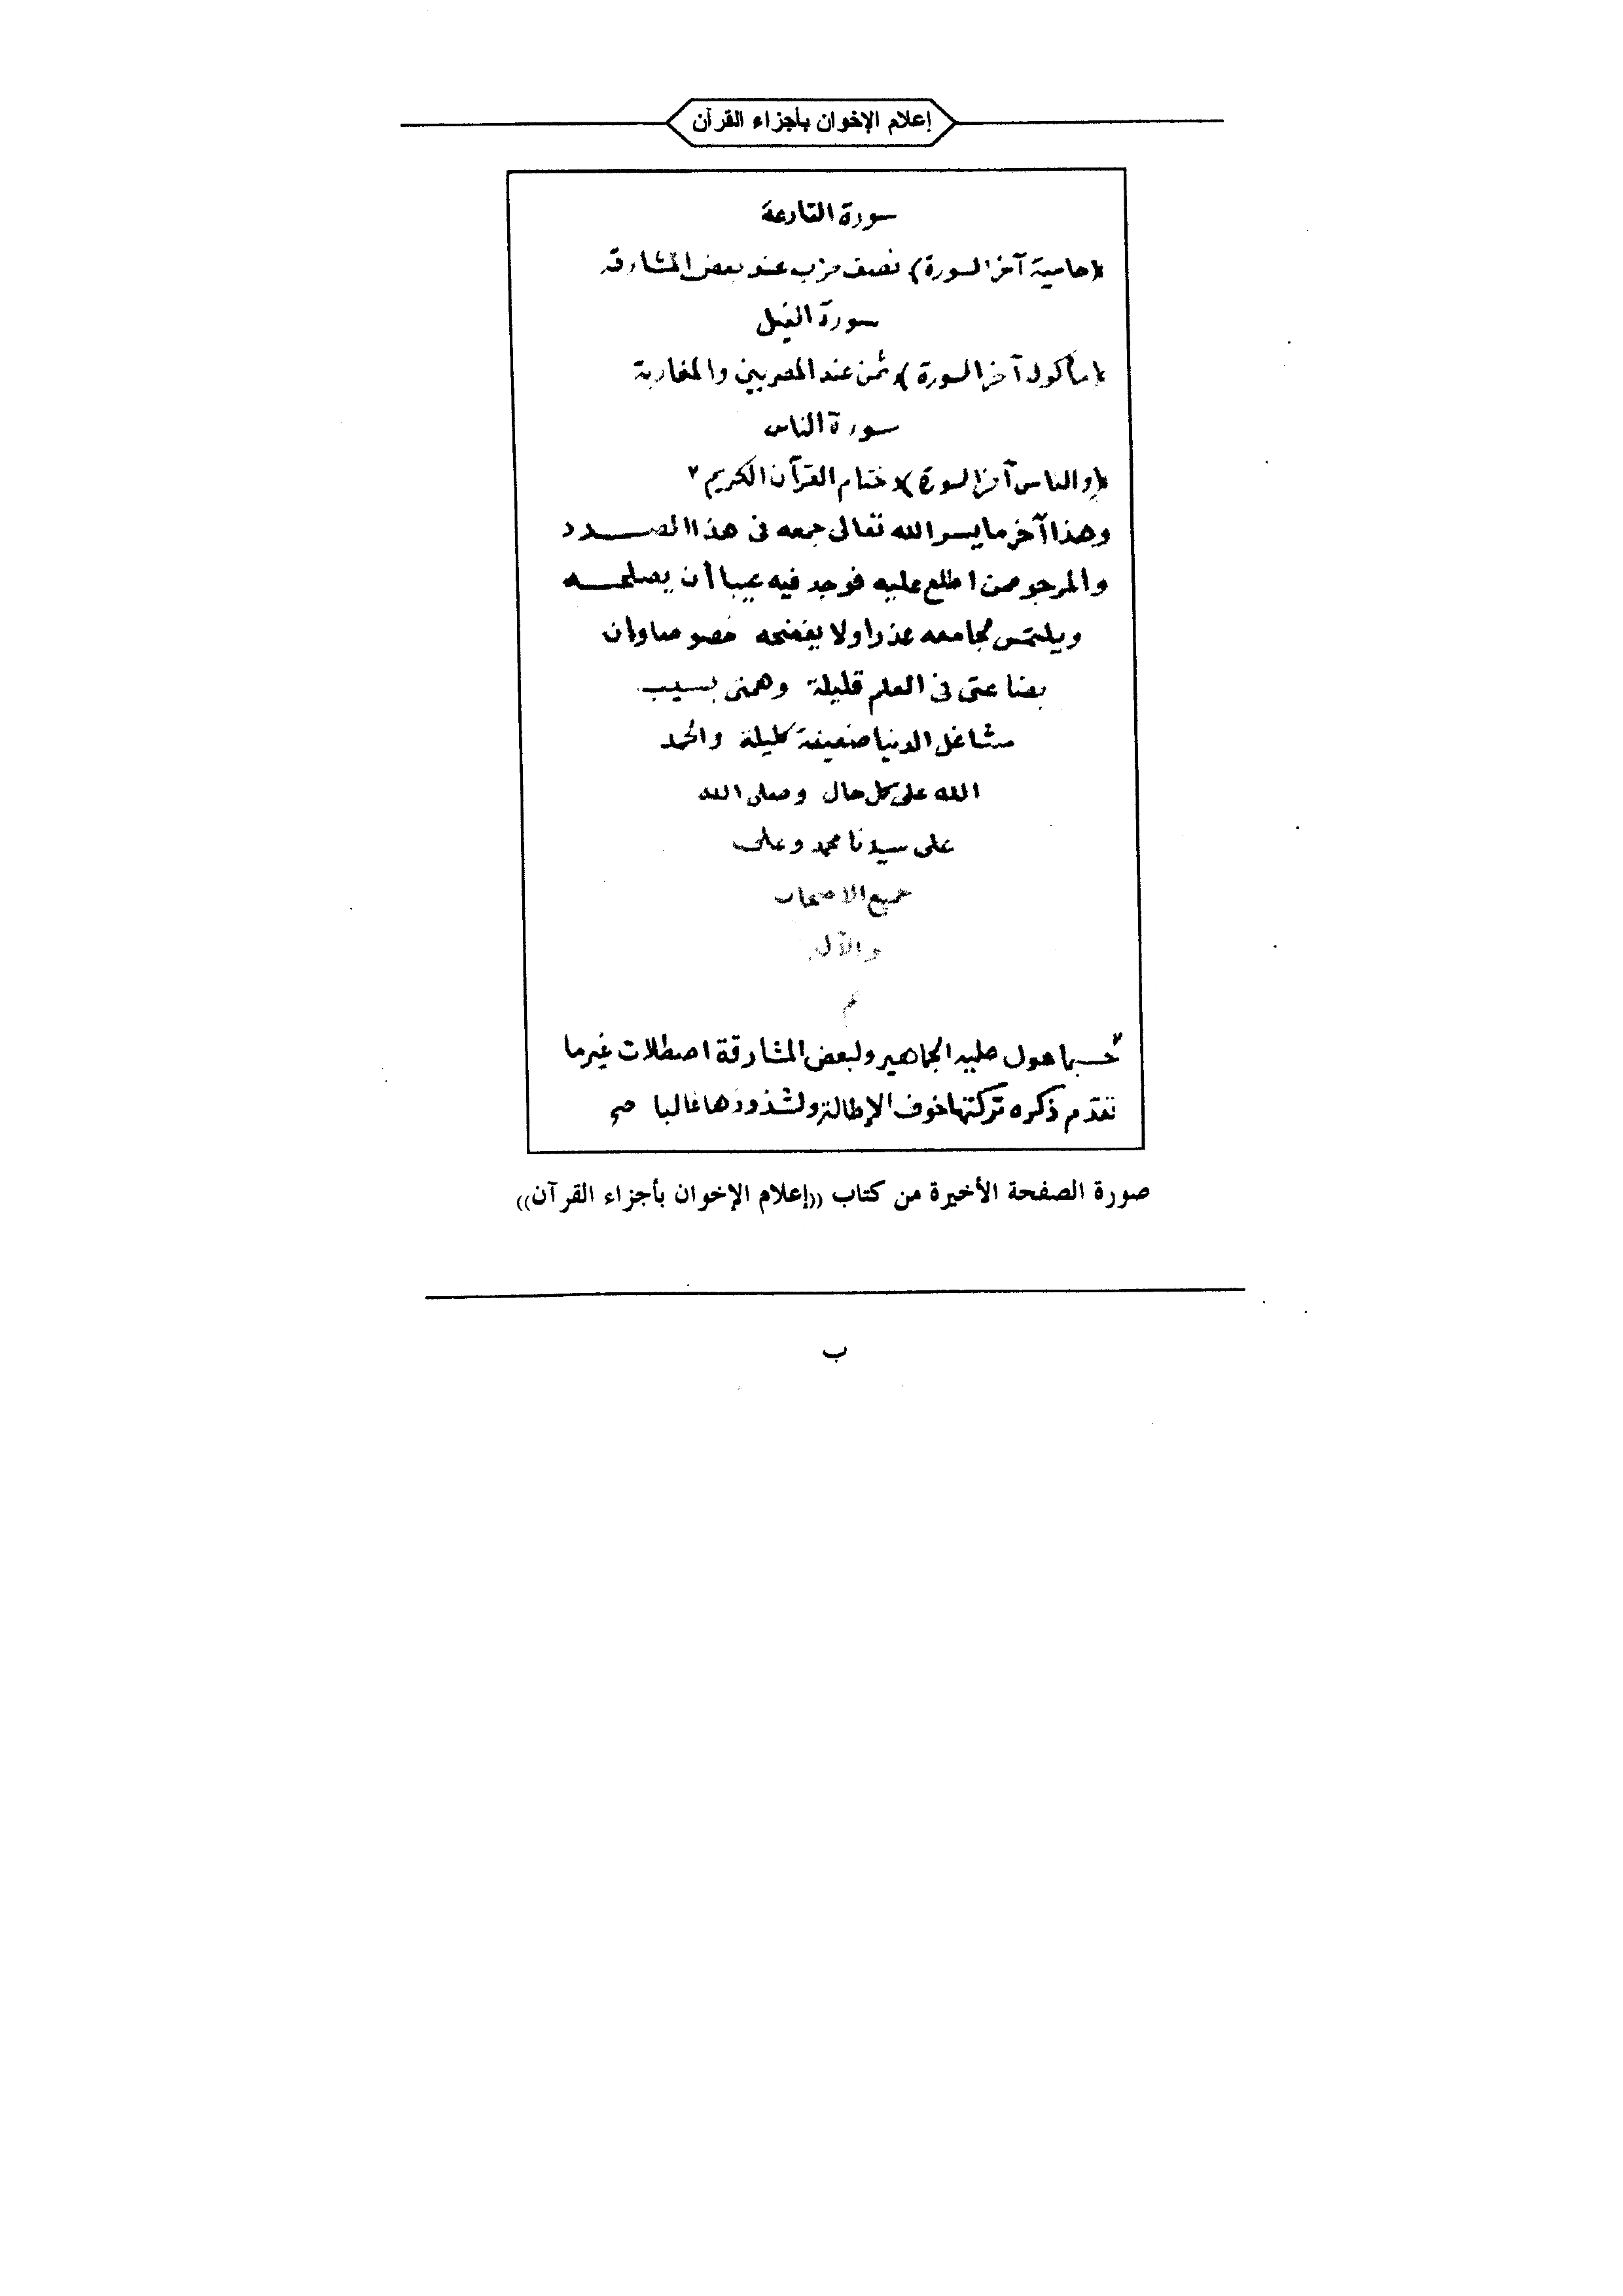 إعلام الإخوان بأجزاء القرآن
سورة القارعة
﴿حامية آخر السورة﴾ نصف حزب عند بعض المشارقة
سورة الفيل
﴿مأكول آخر السورة﴾ ثمن عند المصريين والمغاربة
سورة الناس
﴿والناس آخر السورة﴾ ختام القرآن الكريم ٢
وهذا آخر ما يسر الله تعالى جمعه فى هذا الصدد
والمرجو ممن اطلع عليه فوجد فيه عيبا أن يصلحه
ويلتمس لجامعه عذرا ولا يفضحه خصوصا وان
بضاعتى فى العلم قليلة وهمتى بسبب
مشاغل الدنيا ضعيفة كليلة والحمد
الله على كل حال وصلى الله
على سيدنا محمد وعلى
جميع الاصحاب
والآل
م
٢ حسبما هول عليه الجماهير ولبعض المشارقة اصطلات غير ما
تقدم ذكره تركتها خوف الإطالة ولشذوذها غالبا صح
صورة الصفحة الأخيرة من كتاب ((إعلام الإخوان بأجزاء القرآن))
ب